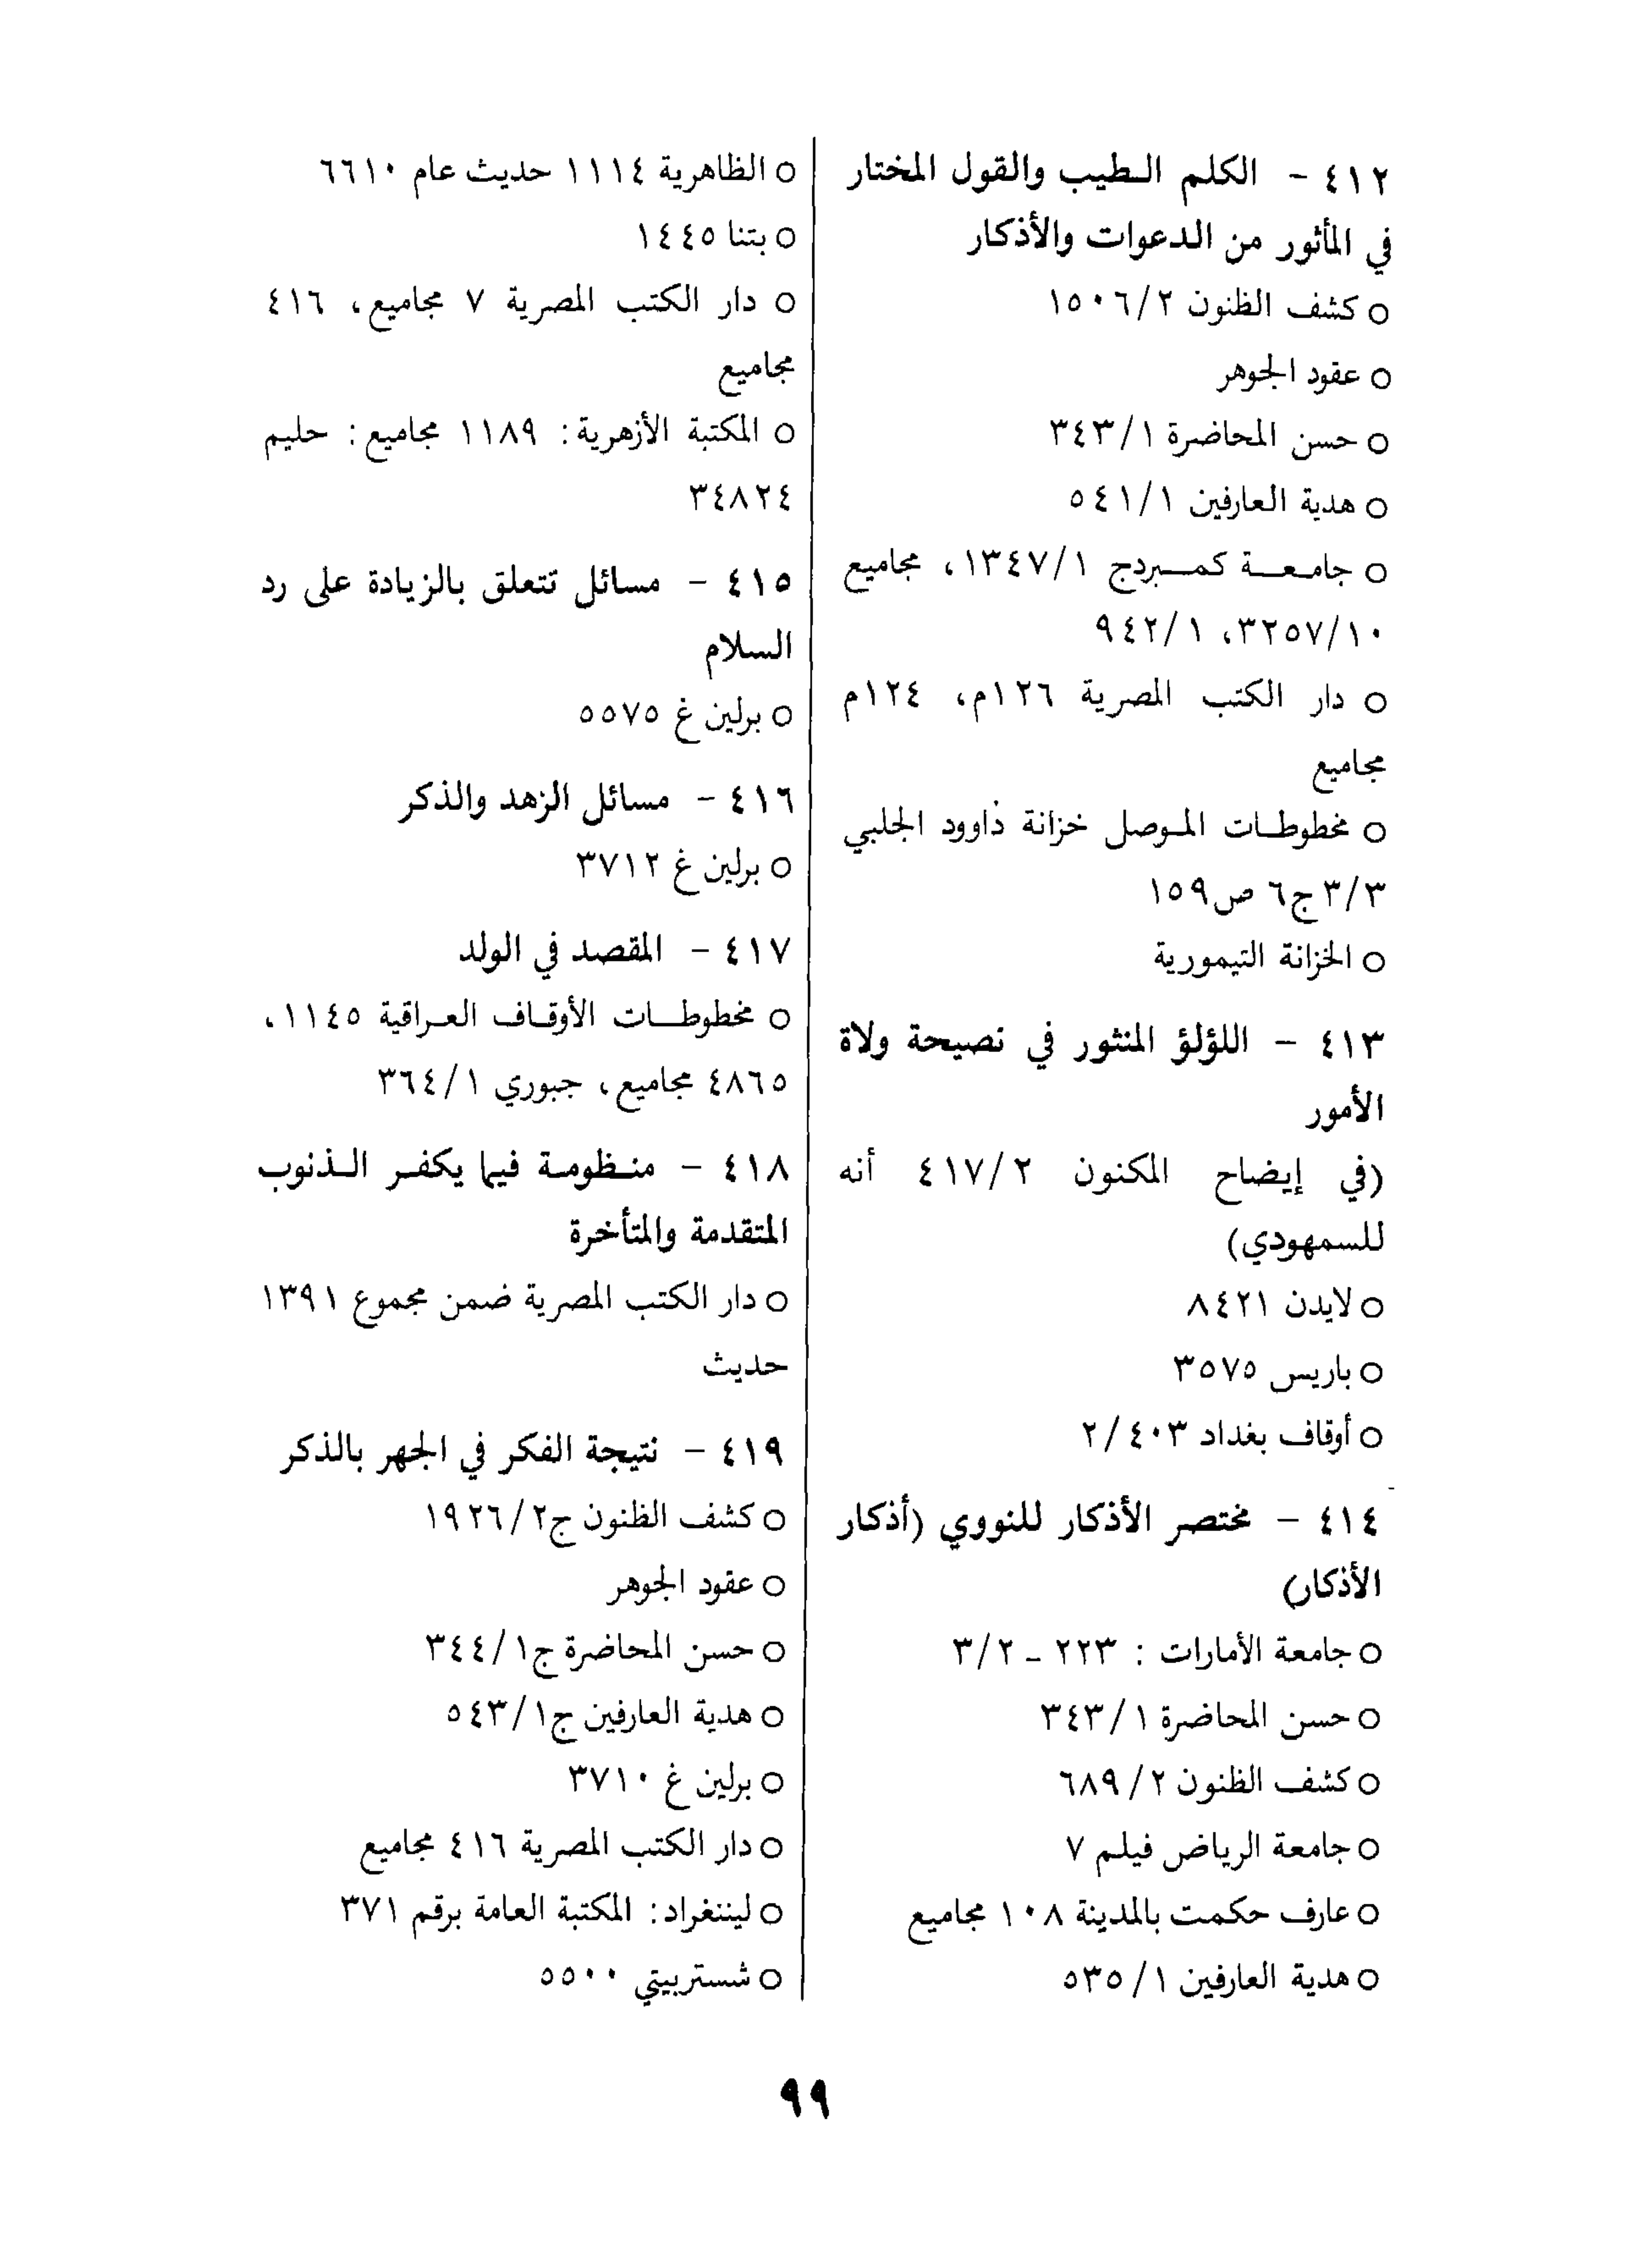 ٤١٢ - الكلم الطيب والقول المختار
في المأثور من الدعوات والأذكار
○ كشف الظنون ١٥٠٦/٢
○ عقود الجوهر
○ حسن المحاضرة ٣٤٣/١
○ هدية العارفين ٥٤١/١
○ جامعة كمبردج ١٣٤٧/١، مجاميع
٣٢٥٧/١٠، ٩٤٢/١
○ دار الكتب المصرية ١٢٦م، ١٢٤م
مجاميع
○ مخطوطات الموصل خزانة داوود الجلبي
٣/٣ ج٦ ص١٥٩
○ الخزانة التيمورية
٤١٣ - اللؤلؤ المنثور في نصيحة ولاة
الأمور
(في إيضاح المكنون ٤١٧/٢ أنه
للسمهودي)
○ لايدن ٨٤٢١
○ باريس ٣٥٧٥
○ أوقاف بغداد ٢/٤٠٣
٤١٤ - مختصر الأذكار للنووي (أذكار
الأذكار)
○ جامعة الأمارات : ٢٢٣ - ٣/٢
○ حسن المحاضرة ٣٤٣/١
○ كشف الظنون ٦٨٩/٢
○ جامعة الرياض فيلم ٧
○ عارف حكمت بالمدينة ١٠٨ مجاميع
○ هدية العارفين ٥٣٥/١
○ الظاهرية ١١١٤ حديث عام ٦٦١٠
○ بتنا ١٤٤٥
○ دار الكتب المصرية ٧ مجاميع، ٤١٦
مجاميع
○ المكتبة الأزهرية: ١١٨٩ مجاميع: حليم
٣٤٨٢٤
٤١٥ - مسائل تتعلق بالزيادة على رد
السلام
○ برلين غ ٥٥٧٥
٤١٦ - مسائل الزهد والذكر
○ برلين غ ٣٧١٢
٤١٧ - المقصد في الولد
○ مخطوطات الأوقاف العراقية ١١٤٥،
٤٨٦٥ مجاميع، جبوري ٣٦٤/١
٤١٨ - منظومة فيما يكفر الذنوب
المتقدمة والمتأخرة
○ دار الكتب المصرية ضمن مجموع ١٣٩١
حديث
٤١٩ - نتيجة الفكر في الجهر بالذكر
○ كشف الظنون ج١٩٢٦/٢
○ عقود الجوهر
○ حسن المحاضرة ج٣٤٤/١
○ هدية العارفين ج٥٤٣/١
○ برلين غ ٣٧١٠
○ دار الكتب المصرية ٤١٦ مجاميع
○ ليننغراد: المكتبة العامة برقم ٣٧١
○ شستربيتي ٥٥٠٠
٩٩